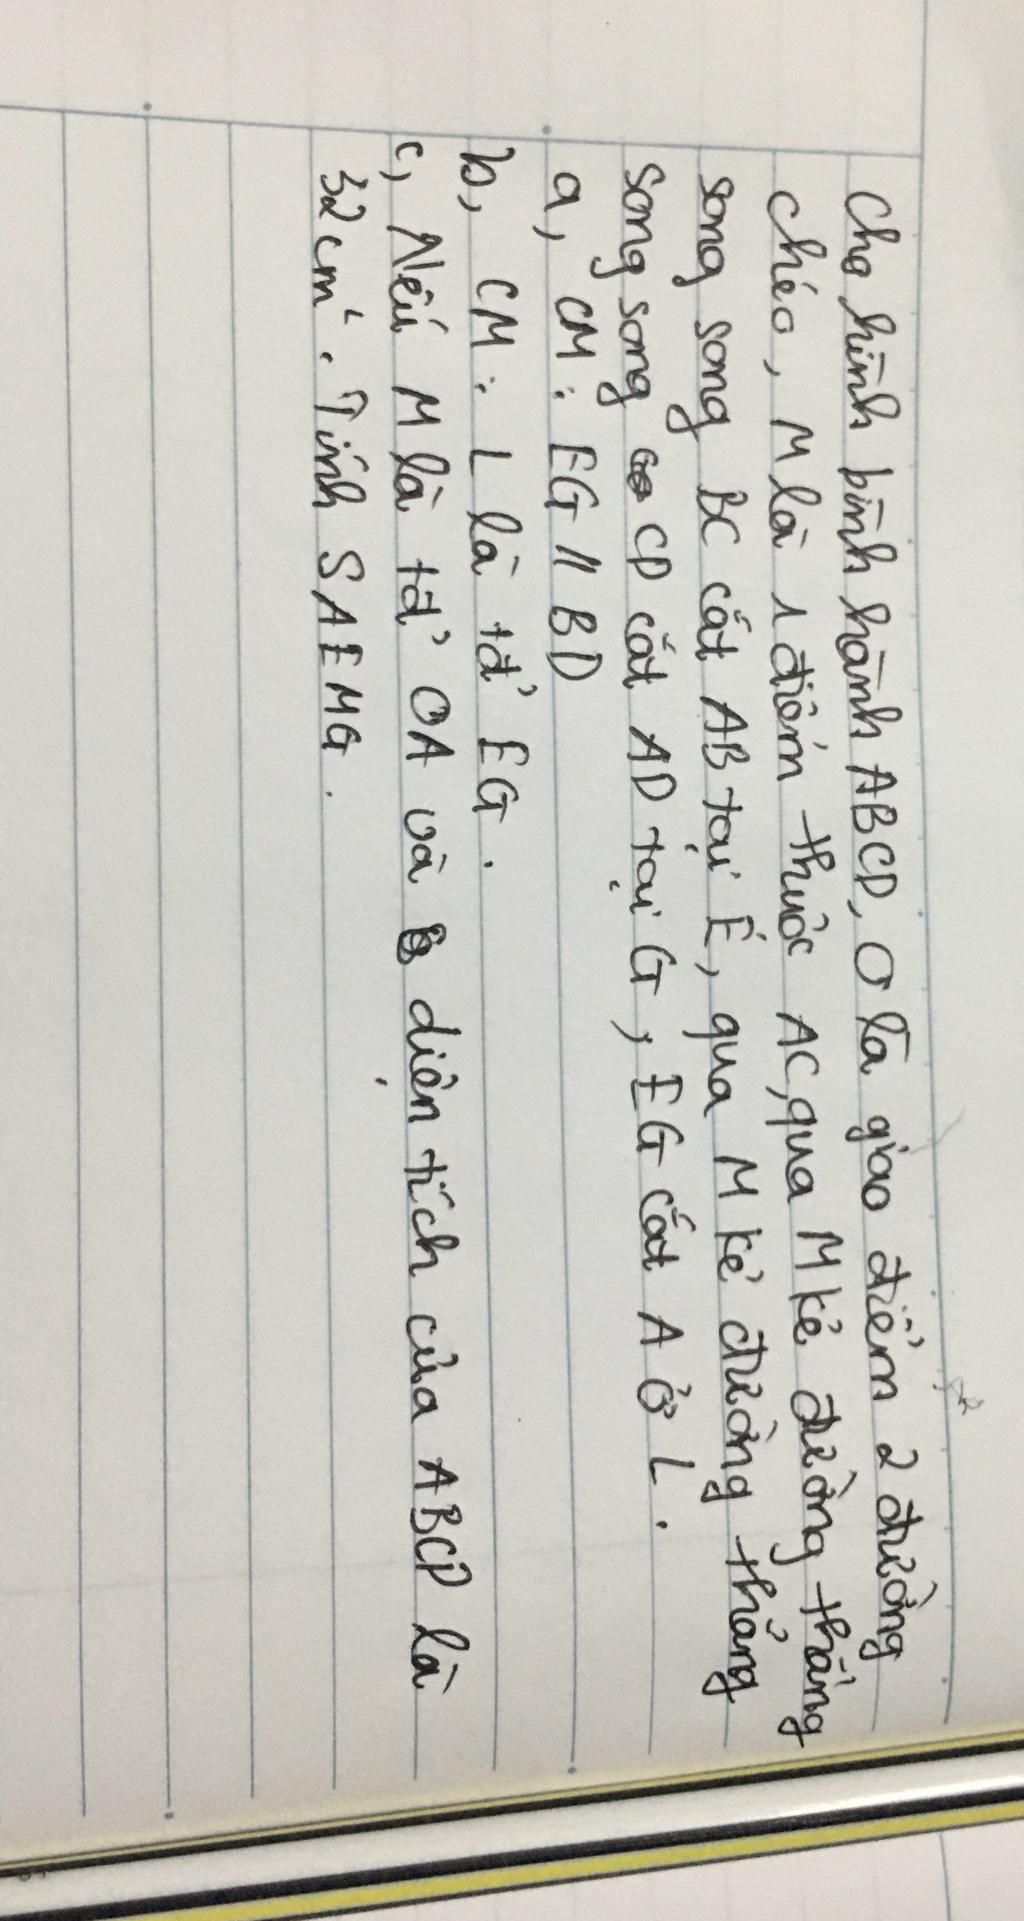 Cho hình bình hành ABCD, O là giao điểm 2 đường
chéo, M là 1 điểm thuộc AC, qua M kẻ đường thẳng
song song BC cắt AB tại E, qua M kẻ đường thẳng
song song CD cắt AD tại G, EG cắt A ở L.
a, CM: EG // BD
b, CM: L là tđ' EG.
c, Nếu M là tđ' OA và diện tích của ABCD là
32cm². Tính SAEMG.